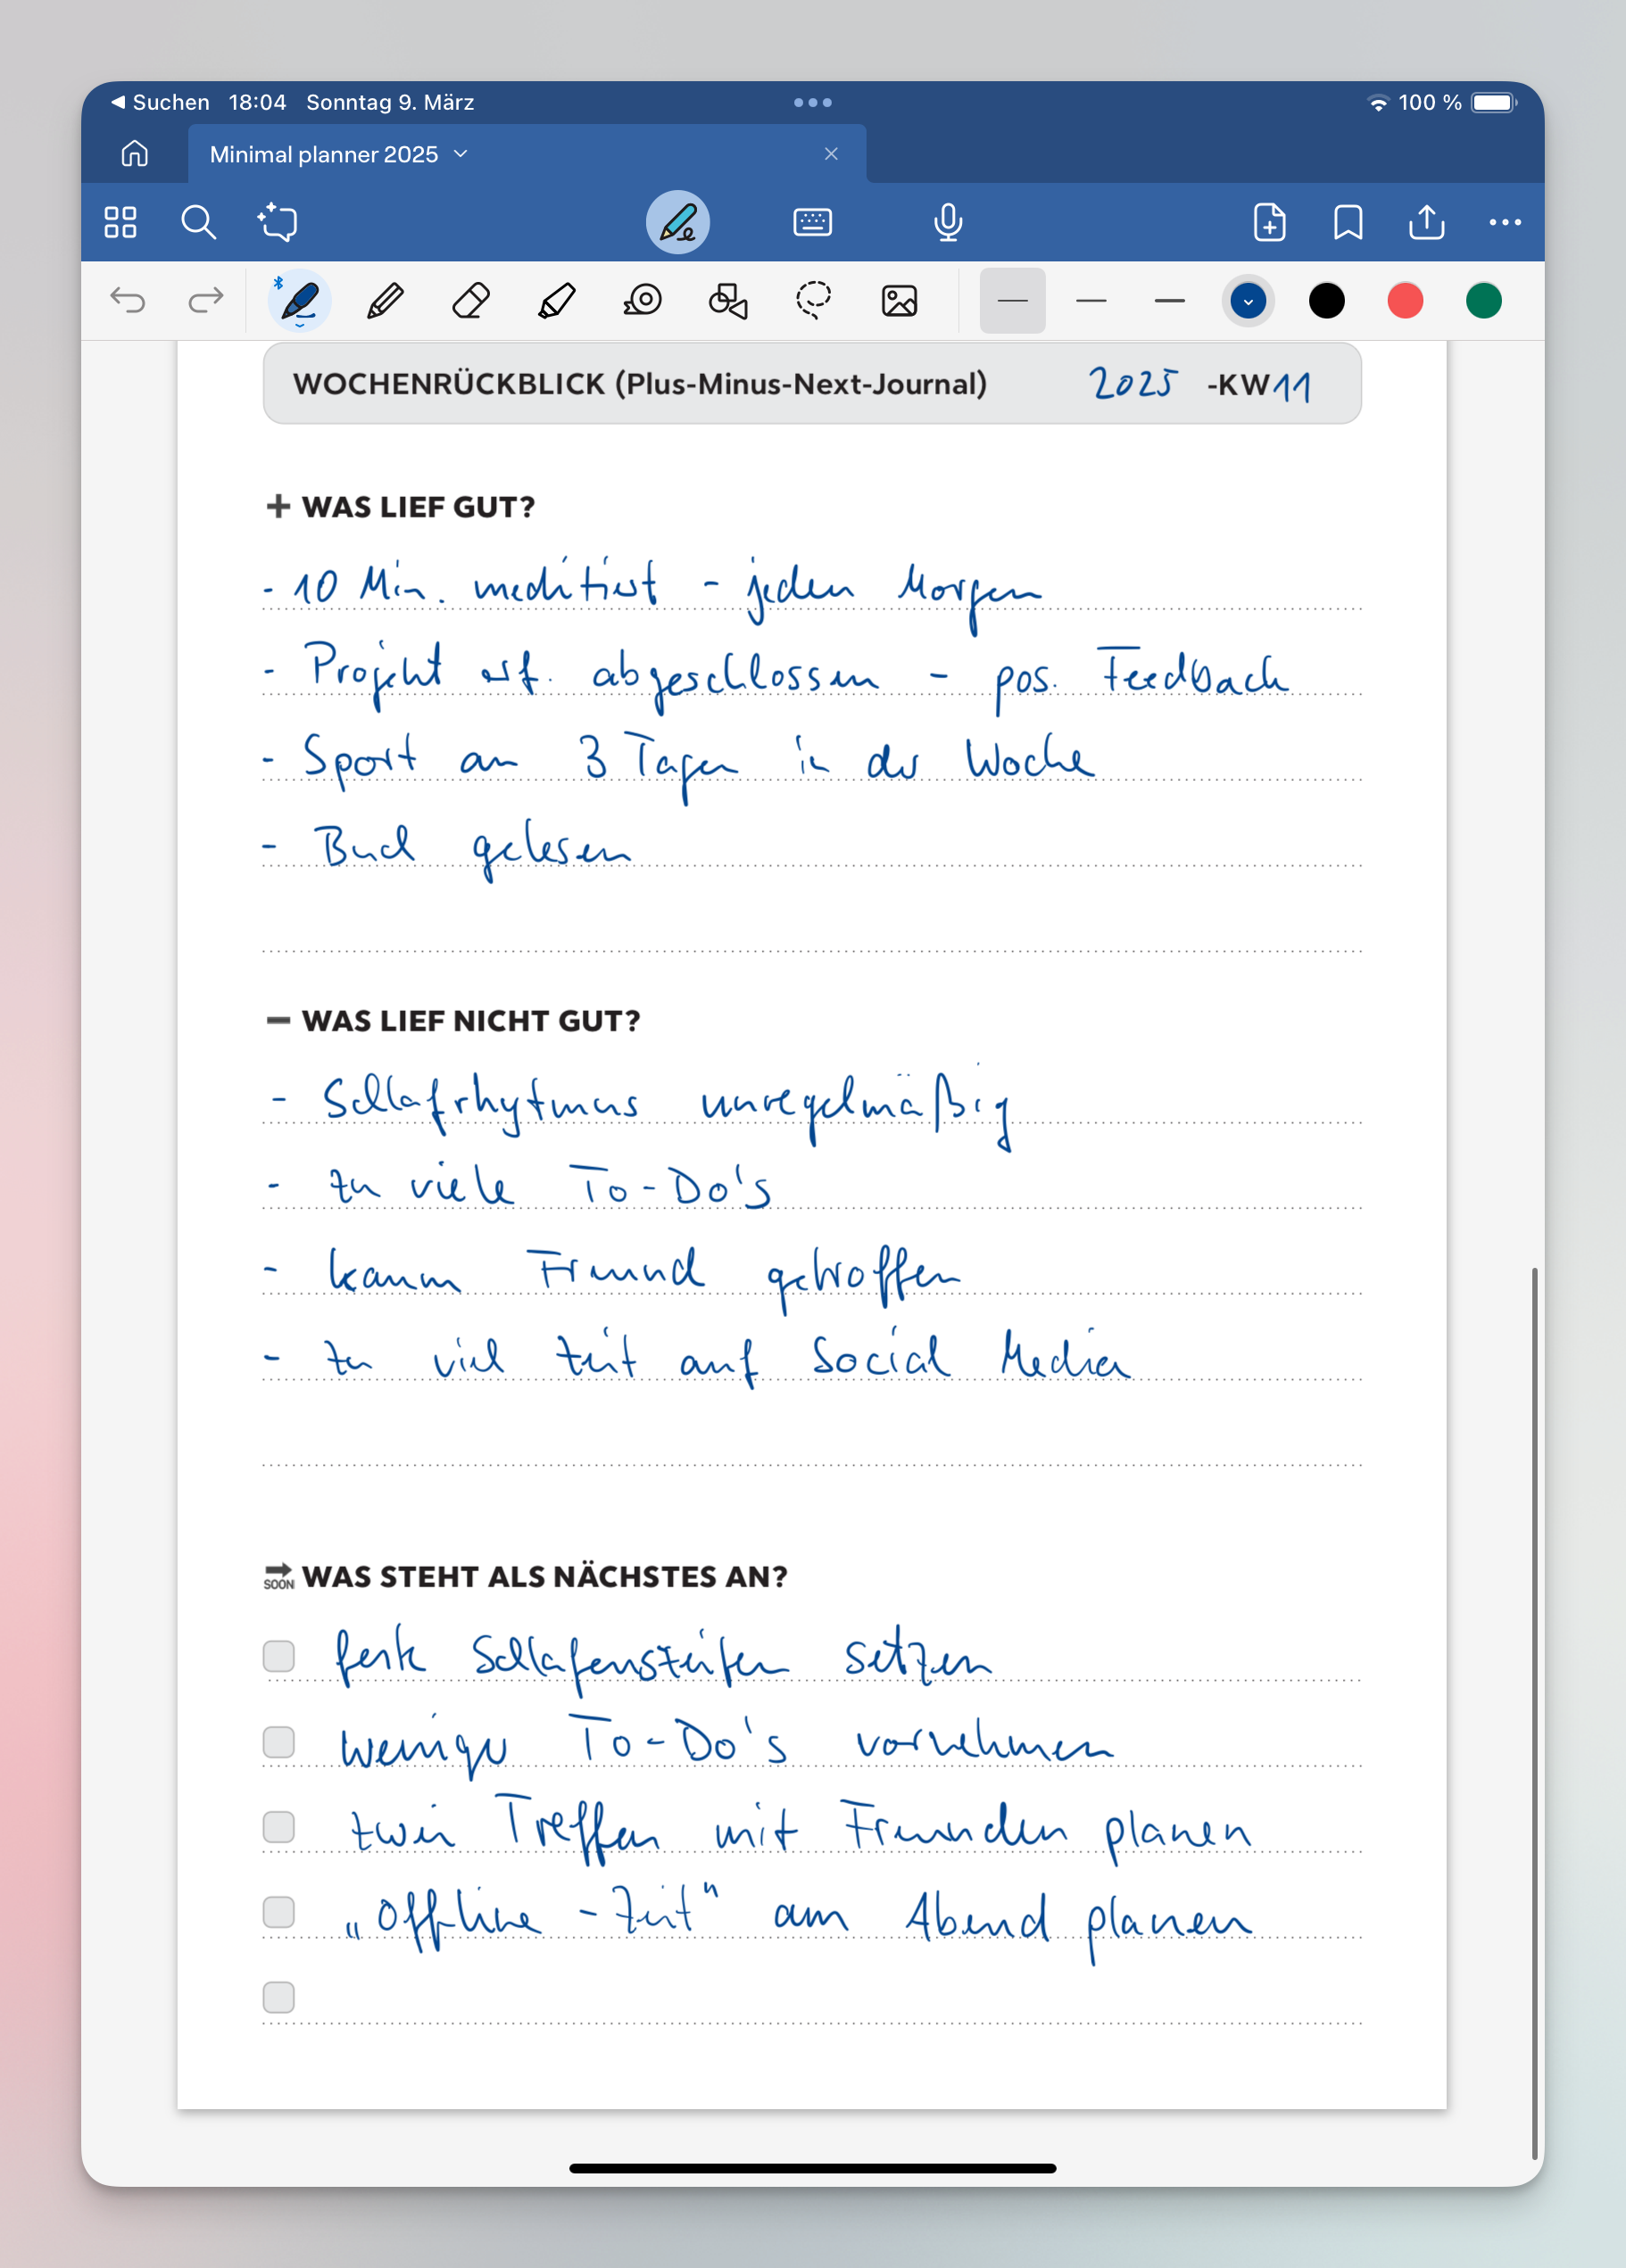 Suchen 18:04 Sonntag 9. März 100 %
Minimal planner 2025
WOCHENRÜCKBLICK (Plus-Minus-Next-Journal) 2025 -KW 11
+ WAS LIEF GUT?
- 10 Min. meditiert - jeden Morgen
- Projekt erf. abgeschlossen - pos. Feedback
- Sport an 3 Tagen in der Woche
- Buch gelesen
− WAS LIEF NICHT GUT?
- Schlafrhytmus unregelmäßig
- zu viele To-Do's
- kaum Freund getroffen
- zu viel Zeit auf Social Media
SOON WAS STEHT ALS NÄCHSTES AN?
feste Schlafenszeiten setzen
weniger To-Do's vornehmen
zwei Treffen mit Freunden planen
„Offline-Zeit" am Abend planen